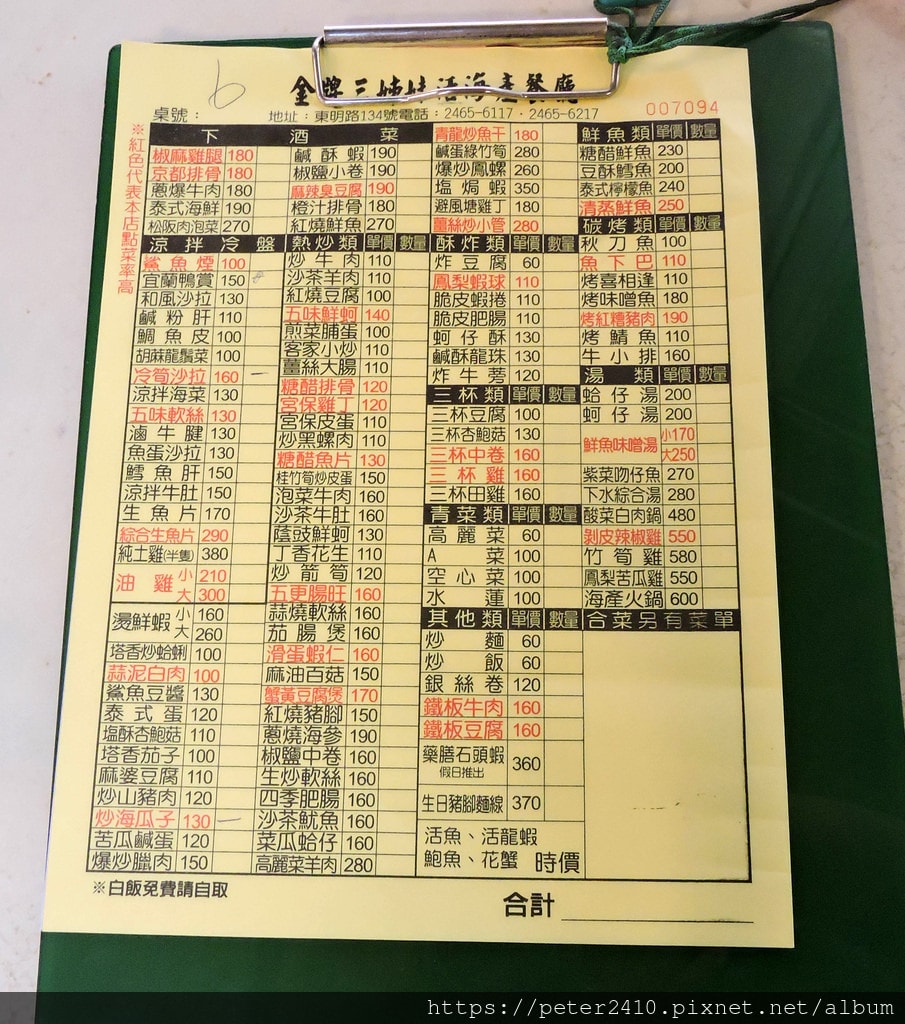 6
金牌三姊妹活海產餐廳
桌號： 地址：東明路134號電話：2465-6117・2465-6217
007094
※紅色代表本店點菜率高
下酒菜
椒麻雞腿 180 鹹酥蝦 190
京都排骨 180 椒鹽小卷 190
蔥爆牛肉 180 麻辣臭豆腐 190
泰式海鮮 190 橙汁排骨 180
松阪肉泡菜 270 紅燒鮮魚 270
涼拌冷盤
鯊魚煙 100
宜蘭鴨賞 150
和風沙拉 130
鹹粉肝 110
鯛魚皮 100
胡麻龍鬚菜 100
冷筍沙拉 160
涼拌海菜 130
五味軟絲 130
滷牛腱 130
魚蛋沙拉 130
鱈魚肝 150
涼拌牛肚 150
生魚片 170
綜合生魚片 290
純土雞(半隻) 380
油雞 小 210
大 300
燙鮮蝦 小 160
大 260
塔香炒蛤蜊 100
蒜泥白肉 100
鯊魚豆醬 130
泰式蛋 120
塩酥杏鮑菇 110
塔香茄子 100
麻婆豆腐 110
炒山豬肉 120
炒海瓜子 130
苦瓜鹹蛋 120
爆炒臘肉 150
熱炒類 單價 數量
炒牛肉 110
沙茶羊肉 110
紅燒豆腐 100
五味鮮蚵 140
煎菜脯蛋 100
客家小炒 110
薑絲大腸 110
糖醋排骨 120
宮保雞丁 120
宮保皮蛋 110
炒黑螺肉 110
糖醋魚片 130
桂竹筍炒皮蛋 150
泡菜牛肉 160
沙茶牛肚 160
蔭豉鮮蚵 130
丁香花生 110
炒箭筍 120
五更腸旺 160
蒜燒軟絲 160
茄腸煲 160
滑蛋蝦仁 160
麻油百菇 150
蟹黃豆腐煲 170
紅燒豬腳 150
蔥燒海參 190
椒鹽中卷 160
生炒軟絲 160
四季肥腸 160
沙茶魷魚 160
菜瓜蛤仔 160
高麗菜羊肉 280
青龍炒魚干 180
鹹蛋綠竹筍 280
爆炒鳳螺 260
塩焗蝦 350
避風塘雞丁 180
薑絲炒小管 280
酥炸類 單價 數量
炸豆腐 60
鳳梨蝦球 110
脆皮蝦捲 110
脆皮肥腸 110
蚵仔酥 130
鹹酥龍珠 130
炸牛蒡 120
三杯類 單價 數量
三杯豆腐 100
三杯杏鮑菇 130
三杯中卷 160
三杯雞 160
三杯田雞 160
青菜類 單價 數量
高麗菜 60
A菜 100
空心菜 100
水蓮 100
其他類 單價 數量
炒麵 60
炒飯 60
銀絲卷 120
鐵板牛肉 160
鐵板豆腐 160
藥膳石頭蝦 360
假日推出
生日豬腳麵線 370
活魚、活龍蝦
鮑魚、花蟹 時價
鮮魚類 單價 數量
糖醋鮮魚 230
豆酥鱈魚 200
泰式檸檬魚 240
清蒸鮮魚 250
碳烤類 單價 數量
秋刀魚 100
魚下巴 110
烤喜相逢 110
烤味噌魚 180
烤紅糟豬肉 190
烤鯖魚 110
牛小排 160
湯類 單價 數量
蛤仔湯 200
蚵仔湯 200
鮮魚味噌湯 小170
大250
紫菜吻仔魚 270
下水綜合湯 280
酸菜白肉鍋 480
剝皮辣椒雞 550
竹筍雞 580
鳳梨苦瓜雞 550
海產火鍋 600
合菜另有菜單
※白飯免費請自取
合計
https://peter2410.pixnet.net/album